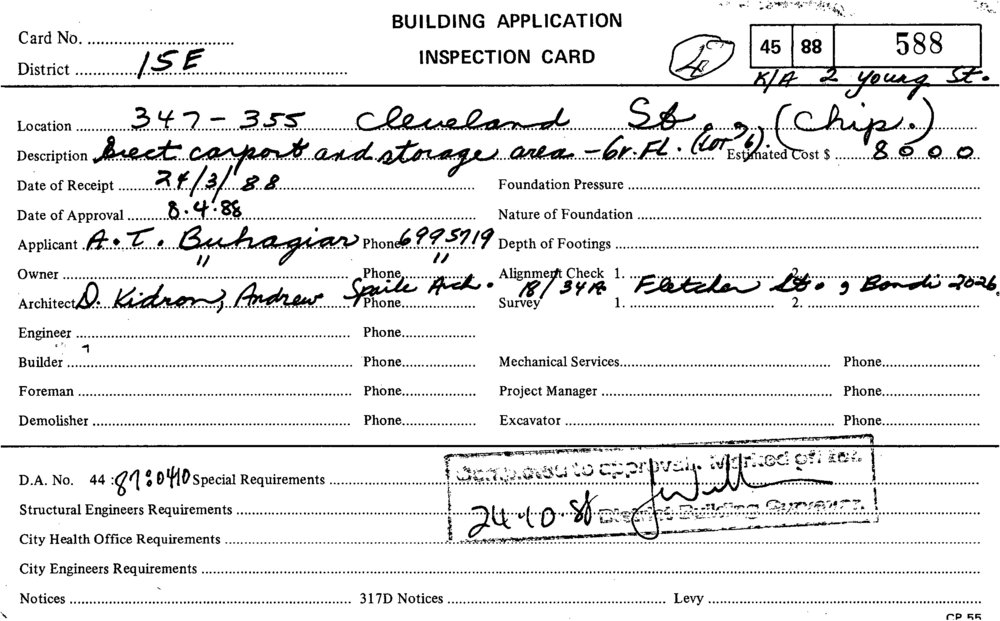 BUILDING APPLICATION
Card No.
INSPECTION CARD
4
45 88 588
District 15E
K/A 2 Young St.
Location 347-355 Cleveland St. (Chip.)
Description Erect carport and storage area - Gr. Fl. (Lot 6). Estimated Cost $ 8000
Date of Receipt 24/3/88 Foundation Pressure
Date of Approval 8.4.88 Nature of Foundation
Applicant A.T. Buhagiar Phone 6995719 Depth of Footings
Owner " Phone " Alignment Check 1. 2.
Architect D. Kidron, Andrew Arch. Phone 18/34A Fletcher St., Bondi 2026.
Survey 1. 2.
Engineer Phone
Builder Phone Mechanical Services Phone
Foreman Phone Project Manager Phone
Demolisher Phone Excavator Phone
Completed to approval. Marked off
D.A. No. 44 : 87:0410 Special Requirements
Structural Engineers Requirements
24.10.88 District Building Surveyor.
City Health Office Requirements
City Engineers Requirements
Notices 317D Notices Levy
CP 55